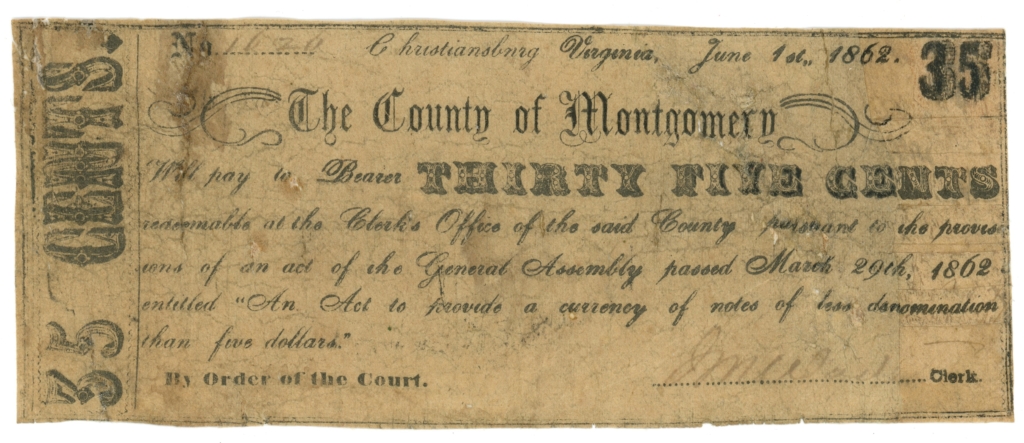 35 CENTS.
No.
Christiansburg Virginia, June 1st,, 1862.
35
The County of Montgomery
Will pay to Bearer THIRTY FIVE CENTS
redeemable at the Clerk's Office of the said County pursuant to the provis-
ions of an act of the General Assembly passed March 29th, 1862
entitled "An Act to provide a currency of notes of less denomination
than five dollars."
By Order of the Court.
Clerk.